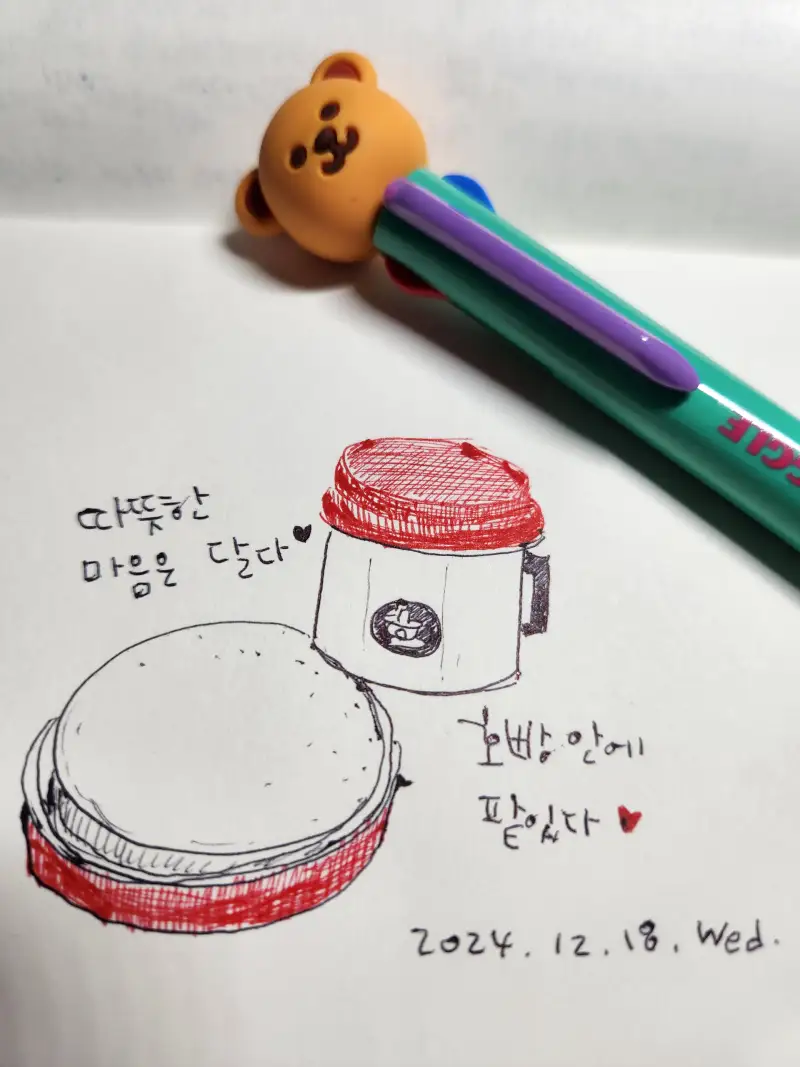 따뜻한
마음은 달다
호빵 안에
팥있다
2024. 12. 18. Wed.